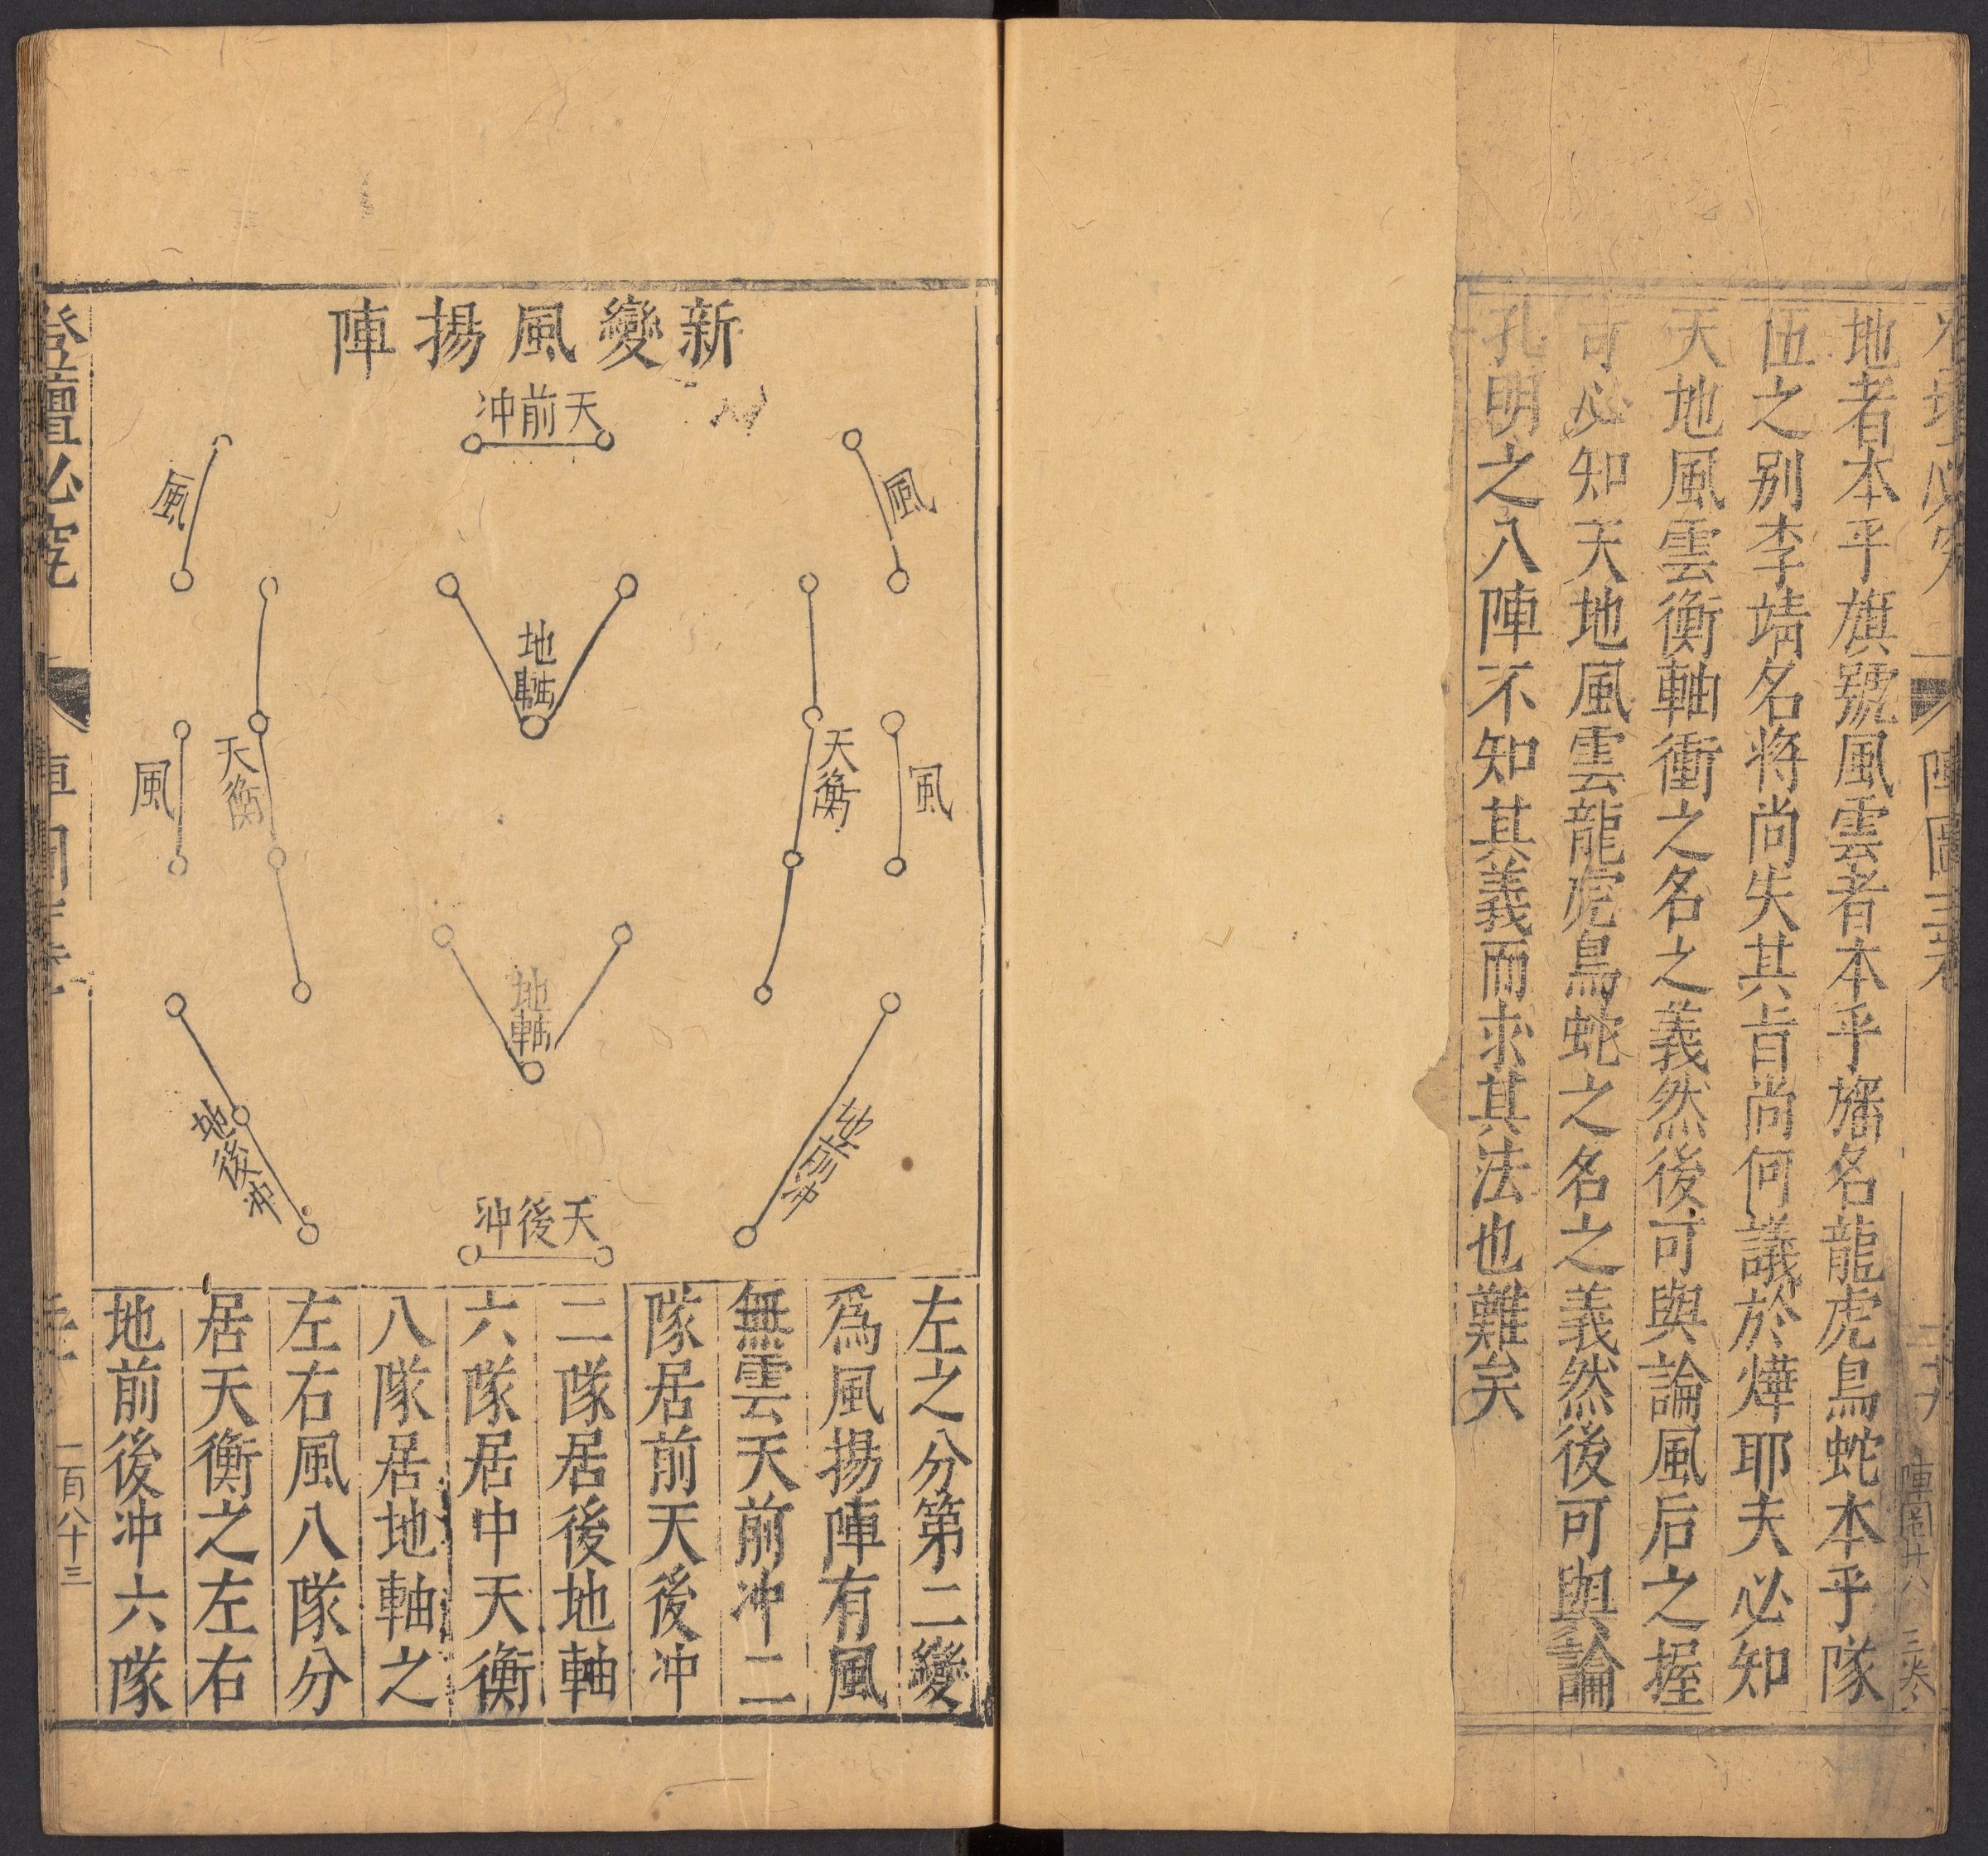 地者本乎旗號風雲者本乎旛名龍虎鳥蛇本乎隊
伍之别李靖名將尚失其旨尚何議於燁耶夫必知
天地風雲衡軸衝之名之義然後可與論風后之握
可必知天地風雲龍虎鳥蛇之名之義然後可與論
孔明之八陣不知其義而求其法也難矣
陣圖三卷
陣圖廿八 三卷
新變風揚陣
天前冲
風
風
地軸
天衡
天衡
風
風
地軸
地前冲
地後冲
天後冲
左之分第二變
爲風揚陣有風
無雲天前冲二
隊居前天後冲
二隊居後地軸
六隊居中天衡
八隊居地軸之
左右風八隊分
居天衡之左右
地前後冲六隊
登壇必究
一百八十三